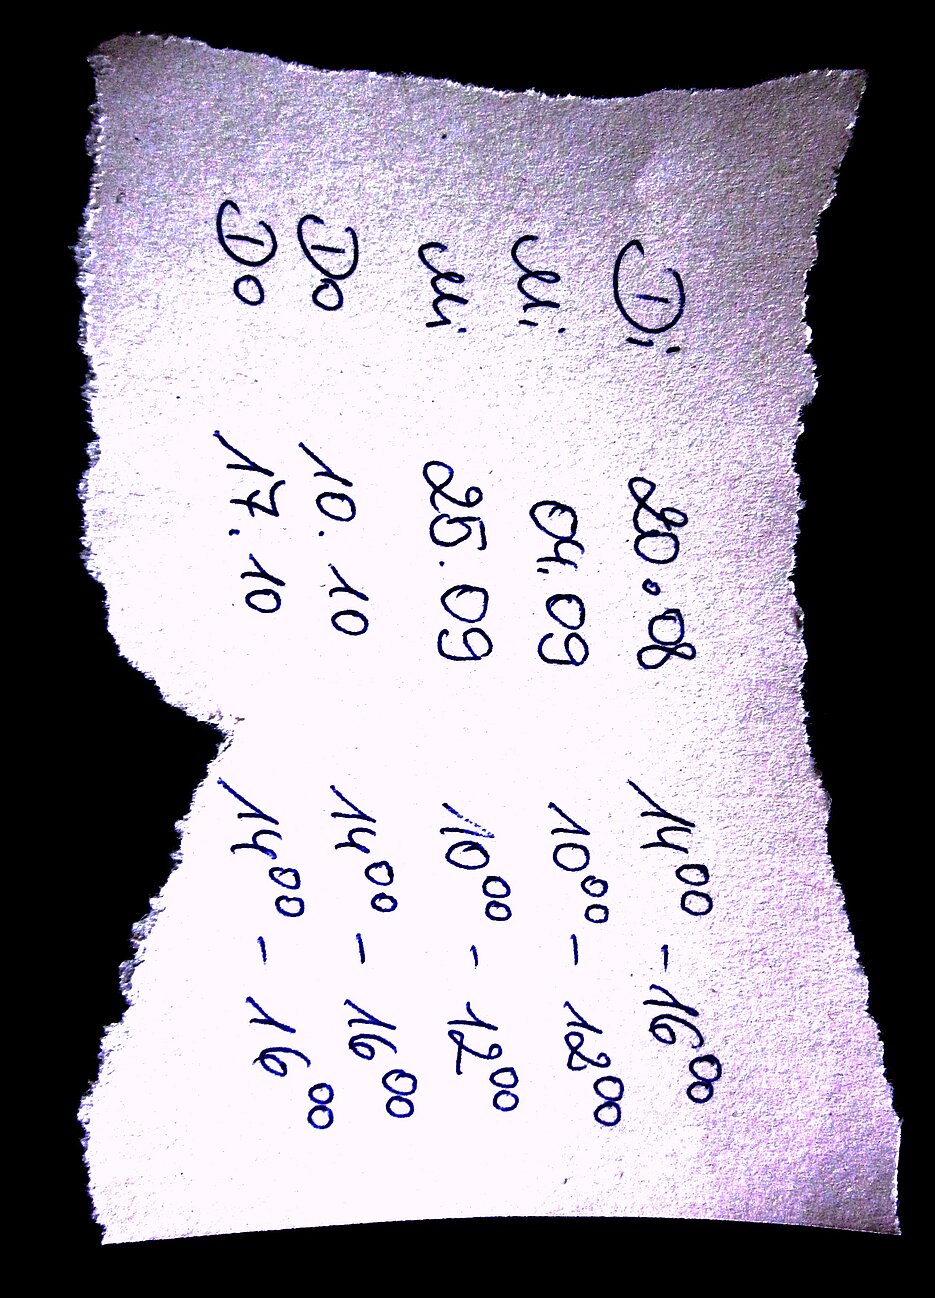 Di 20.08 14⁰⁰ - 16⁰⁰
Mi 04.09 10⁰⁰ - 12⁰⁰
Mi 25.09 10⁰⁰ - 12⁰⁰
Do 10.10 14⁰⁰ - 16⁰⁰
Do 17.10 14⁰⁰ - 16⁰⁰